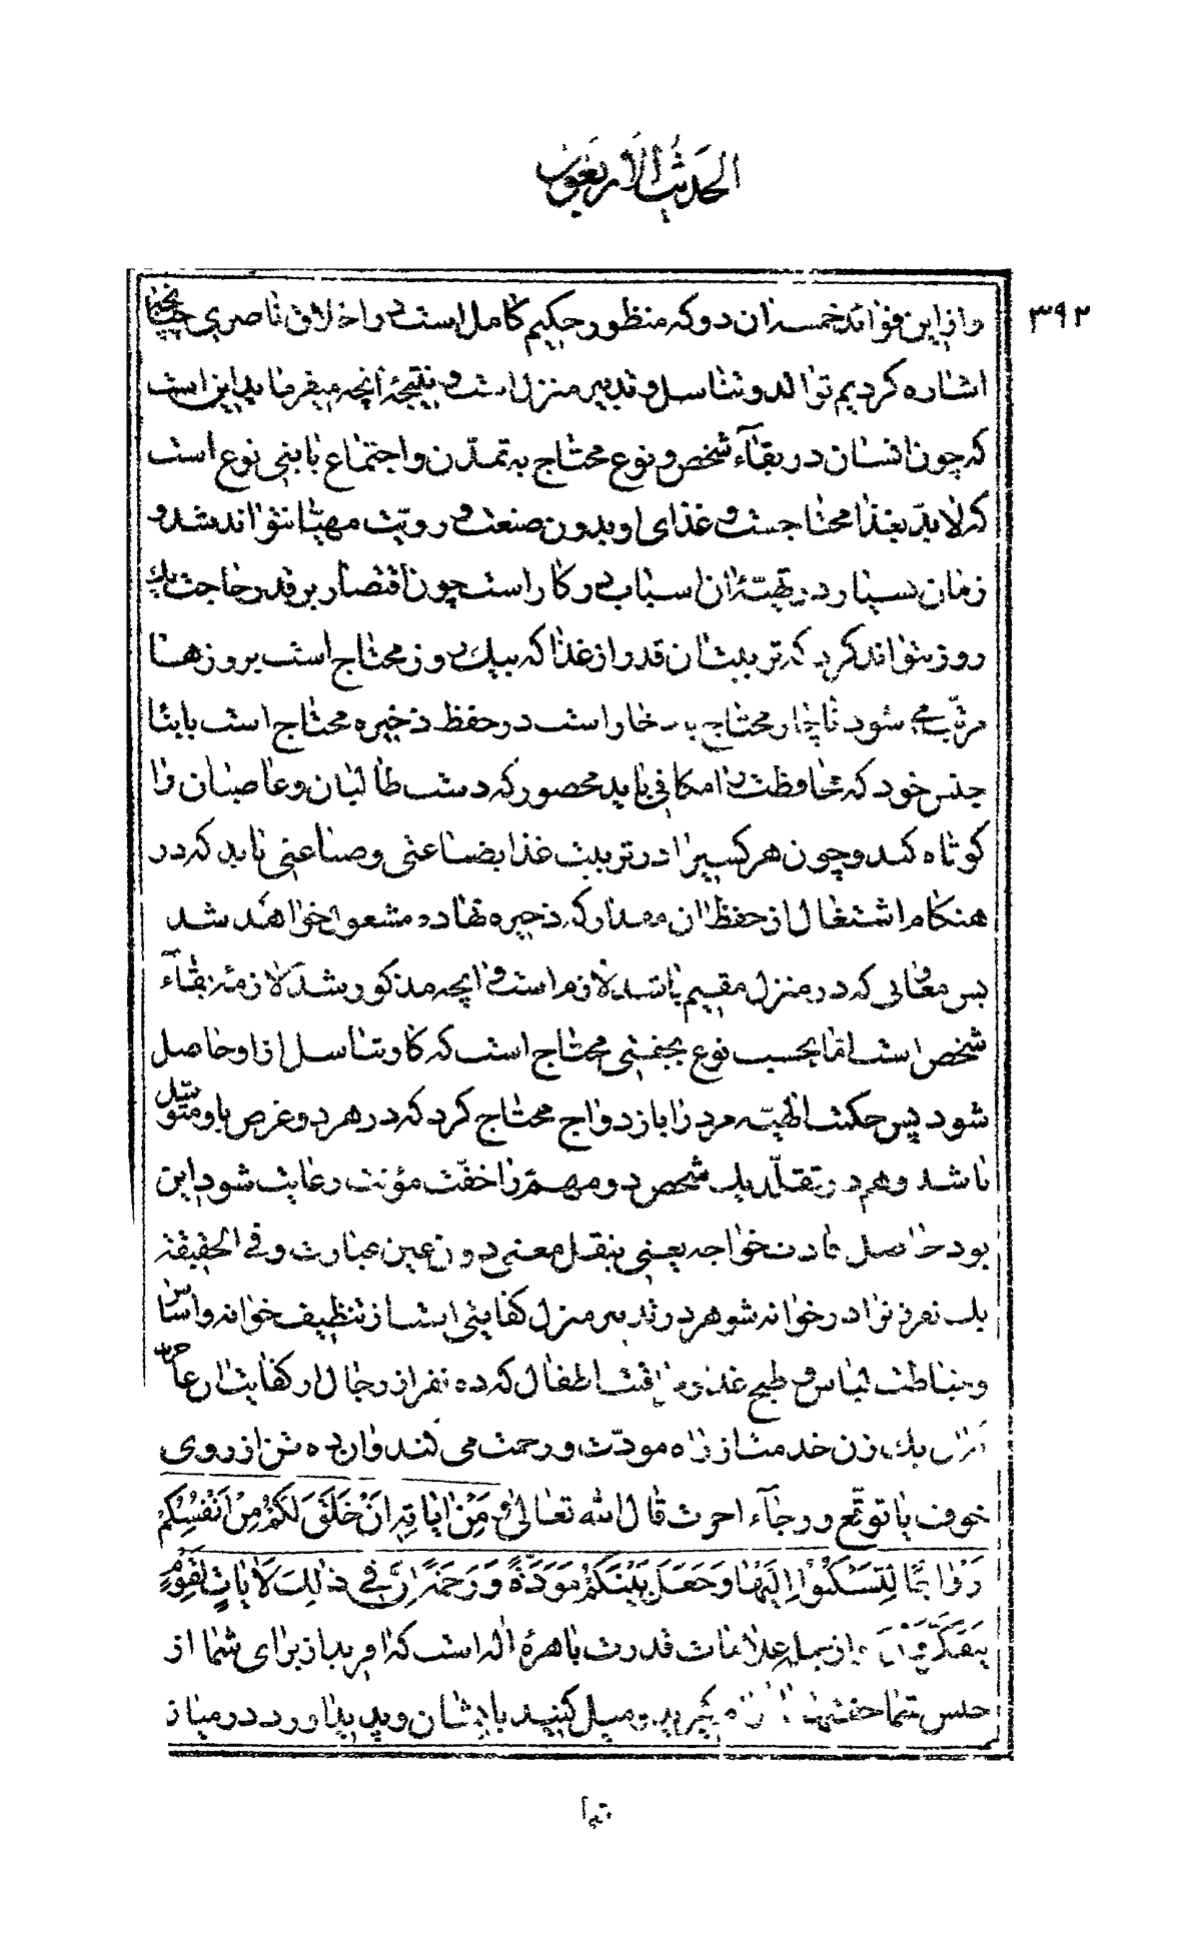 الحدیث الأربعون
۳۹۲
و از این فوائد خمسه آن دو که منظور حکیم کامل است و در اخلاق ناصری چنانچه
اشاره کردیم توالد و تناسل و تدبیر منزل است و نتیجهٔ آنچه میفرماید این است
که چون انسان در بقآء شخص و نوع محتاج به تمدّن و اجتماع با بنی نوع است
که لابدّ بغذا محتاجست و غذای او بدون صنعت و رویّت مهیّا نتواند شد و
زمان بسیار در تهیّهٔ آن اسباب در کار است چون اقتصار بر قدر حاجت یک
روز نتواند کرد که ترتیب آن قدر از غذا که بیک روز محتاج است بروزها
مرتّب می شود ناچار محتاج به ادخار است در حفظ ذخیره محتاج است بابنا
جنس خود که محافظت را مکانی باید محصور که دست طالبان و غاصبان را
کوتاه کند و چون هر کسیرا در تربیت غذا بضاعتی و صناعتی باید که در
هنگام اشتغال از حفظ آن مقدار که ذخیره نهاده مشعوف خواهند شد
پس معاونی که در منزل مقیم باشد لازم است و آنچه مذکور شد لازمهٔ بقآء
شخص است امّا بحسب نوع بجفتی محتاج است که کار تناسل از او حاصل
شود پس حکمت الهیّه مرد را بازدواج محتاج کرد که در هر دو غرض باو متوسّل
باشد و هم در تقلّد یک شخص دو مهمّ را خفّت مؤنت رعایت شود این
بود حاصل خواجه یعنی بنقل معنی دون عین عبارت و فی الحقیقة
یک نفر زنرا در خوانه شوهر در تدبیر منزل کفایتی است از تنظیف خوانه و اساس
و خیاطت لباس و طبخ غذا و اطفال که ده نفر از رجال از کفایت آن عاجزند
یک زن خدمت از راه مودّت و رحمت می کند و آن ده تن از روی
خوف یا توقّع و رجآء اجرت قال الله تعالی وَ مِنْ اٰیاتِهِ اَنْ خَلَقَ لَکُمْ مِنْ اَنْفُسِکُمْ
اَزْوٰاجًا لِتَسْکُنُوا اِلَیْهٰا وَ جَعَلَ بَیْنَکُمْ مَوَدَّةً وَ رَحْمَةً اِنَّ فی ذٰلِکَ لَاٰیاتٍ لِقَوْمٍ
یَتَفَکَّرُونَ و از جمله علامات قدرت باهرهٔ اله است که آفرید از برای شما از
جنس شما جفتها بگیرید و میل کنید بایشان و پدید آورد در میان